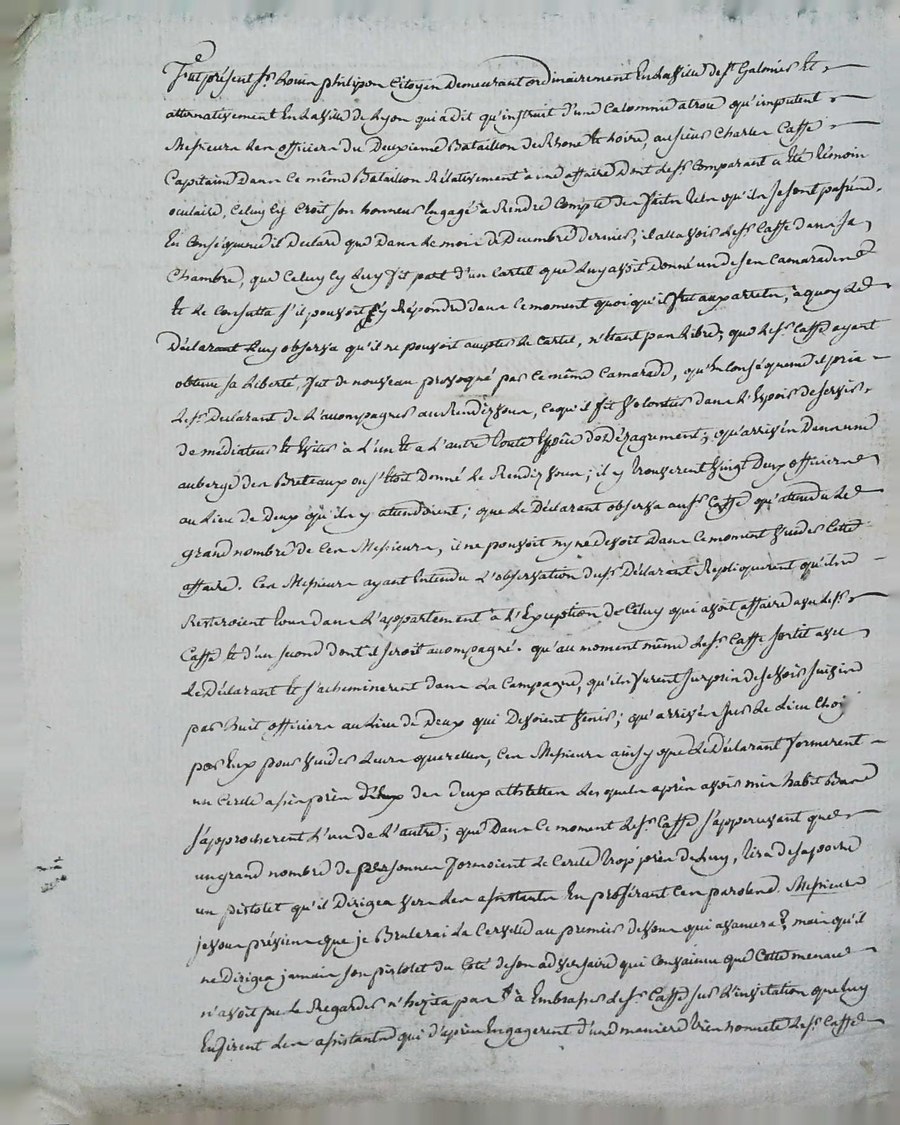 Fut présent Sr. Louis philipon Citoyen Demeurant ordinairement En la ville de St. Galmier Et
alternativement En la ville de Lyon qui a dit qu'instruit d'une Calomnie atroce qu'imputent
Messieurs Les officiers du Deuxieme Bataillon de Rhone et Loire, au sieur Charles Caffe
Capitaine Dans Ce même Bataillon Rélativement à une affaire Dont Le Sr. Comparant a Eté témoin
oculaire, Celuy Cy Croit son honneur Engagé à Rendre Compte des faits tels qu'ils se sont passés.
En Conséquence il Déclare que Dans Le mois de Décembre dernier, il alla voir Le Sr. Caffe dans sa
Chambre, que Celuy Cy Luy fit part d'un Cartel que Luy avoit Donné un de ses Camarades
et Le Consulta s'il pouvoit y Répondre dans Ce moment quoi qu'il fut aux arrets, à quoy Le
Déclarant Luy observa qu'il ne pouvoit accepter Le Cartel, n'étant pas Libre; que Le Sr. Caffe ayant
obtenu sa Liberté, fut de nouveau provoqué par Ce même Camarade, qu'En Conséquence il pria
Le Sr. Déclarant de L'accompagner au Rendez vous, Ce qu'il fit volontiers dans L'Espoir de servir
de médiateur Et Eviter à L'un Et a L'autre toute Espèce de Dézagrément; qu'arrivés Dans une
auberge des Broteaux où s'Etoit Donné Le Rendez vous; il y trouverent vingt Deux officiers
au Lieu de Deux qu'ils y attendoient; que Le Déclarant observa au Sr. Caffe qu'attendu Le
grand nombre de Ces Messieurs, il ne pouvoit ny ne Devoit Dans Ce moment vuider Cette
affaire. Ces Messieurs ayant Entendu L'observation du Sr. Déclarant Repliquerent qu'ils
Resteroient tous dans L'appartement à L'Exception de Celuy qui avoit affaire avec Le Sr.
Caffe Et d'un second dont il seroit accompagné. qu'au moment même Le Sr. Caffe sortit avec
Le Déclarant Et s'acheminerent dans La Campagne, qu'ils furent surpris de se voir suivis
par huit officiers au Lieu de Deux qui Devoient venir; qu'arrivés sur Le Lieu Choisi
par Eux pour vuider Leurs querelles, Ces Messieurs ainsy que Le Déclarant formerent
un Cercle assés près des deux athletes Lesquels après avoir mis habit Bas
s'approcherent L'un de L'autre; que Dans Ce moment Le Sr. Caffe s'appercevant que
un grand nombre de personnes formoient Le Cercle trop près de Luy, tira de sa poche
un pistolet qu'il Dirigea vers Les assistants En proférant Ces paroles. Messieurs
je vous préviens que je Brulerai La Cervelle au premier de vous qui avancera, mais qu'il
ne dirigea jamais son pistolet du Coté de son adversaire qui Convaincu que Cette menace
n'avoit pu Le Regarder n'hézita pas à Embrasser Le Sr. Caffe sur L'invitation que Luy
En firent Les assistants qui d'après Engagerent d'une maniere bien honnete Le Sr. Caffe